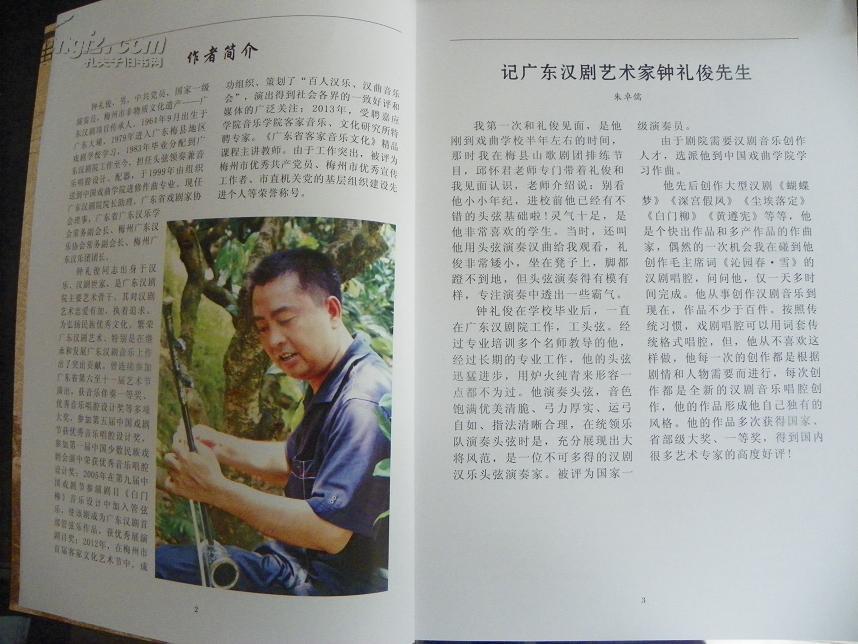 作者简介
钟礼俊，男，中共党员，国家一级
演奏员，梅州市非物质文化遗产——广
东汉剧项目传承人。1961年9月出生于
广东大埔，1979年进入广东梅县地区
戏剧学校学习，1983年毕业分配到广
东汉剧院工作至今，担任头弦领奏兼音
乐唱腔设计、配器，于1999年由组织
送到中国戏曲学院进修作曲专业。现任
广东汉剧院院长助理，广东省戏剧家协
会理事，广东省广东汉乐学
会常务副会长、梅州广东汉
乐协会常务副会长、梅州广
东汉乐团团长。
钟礼俊同志出身于汉
乐、汉剧世家，是广东汉剧
院主要艺术骨干。其对汉剧
艺术忠爱有加，执着追求。
为弘扬民族优秀文化，繁荣
广东汉剧艺术，特别是在继
承和发展广东汉剧音乐上作
出了突出贡献。曾连续参加
广东省第六至十一届艺术节
演出，获音乐伴奏一等奖、
优秀音乐唱腔设计奖等多项
大奖，参加第五届中国戏剧
节获优秀音乐唱腔设计奖，
参加第一届中国少数民族戏
剧会演中荣获优秀音乐唱腔
设计奖；2005年在第九届中
国戏剧节参演剧目《白门
柳》音乐设计中加入管弦
乐，使该剧成为广东汉剧首
部管弦乐作品，获优秀展演
剧目奖；2012年，在梅州市
首届客家文化艺术节中，成
功组织、策划了“百人汉乐、汉曲音乐
会”，演出得到社会各界的一致好评和
媒体的广泛关注；2013年，受聘嘉应
学院音乐学院客家音乐、文化研究所特
聘专家。《广东省客家音乐文化》精品
课程主讲教师。由于工作突出，被评为
梅州市优秀共产党员、梅州市优秀宣传
工作者、市直机关党的基层组织建设先
进个人等荣誉称号。
2
记广东汉剧艺术家钟礼俊先生
朱卓儒
我第一次和礼俊见面，是他
刚到戏曲学校半年左右的时间，
那时我在梅县山歌剧团排练节
目，邱怀君老师专门带着礼俊和
我见面认识，老师介绍说：别看
他小小年纪，进校前他已经有不
错的头弦基础啦！灵气十足，是
他非常喜欢的学生。当时，还叫
他用头弦演奏汉曲给我观看，礼
俊非常矮小，坐在凳子上，脚都
蹬不到地，但头弦演奏得有模有
样，专注演奏中透出一些霸气。
钟礼俊在学校毕业后，一直
在广东汉剧院工作，工头弦。经
过专业培训多个名师教导的他，
经过长期的专业工作，他的头弦
迅猛进步，用炉火纯青来形容一
点都不为过。他演奏头弦，音色
饱满优美清脆、弓力厚实、运弓
自如、指法清晰合理，在统领乐
队演奏头弦时是，充分展现出大
将风范，是一位不可多得的汉剧
汉乐头弦演奏家。被评为国家一
级演奏员。
由于剧院需要汉剧音乐创作
人才，选派他到中国戏曲学院学
习作曲。
他先后创作大型汉剧《蝴蝶
梦》《深宫假凤》《尘埃落定》
《白门柳》《黄遵宪》等等，他
是个快出作品和多产作品的作曲
家，偶然的一次机会我在碰到他
创作毛主席词《沁园春·雪》的
汉剧唱腔，问问他，仅一天多时
间完成。他从事创作汉剧音乐到
现在，作品不少于百件。按照传
统习惯，戏剧唱腔可以用词套传
统格式唱腔，但，他从不喜欢这
样做，他每一次的创作都是根据
剧情和人物需要而进行，每次创
作都是全新的汉剧音乐唱腔创
作，他的作品形成他自己独有的
风格。他的作品多次获得国家、
省部级大奖、一等奖，得到国内
很多艺术专家的高度好评！
3